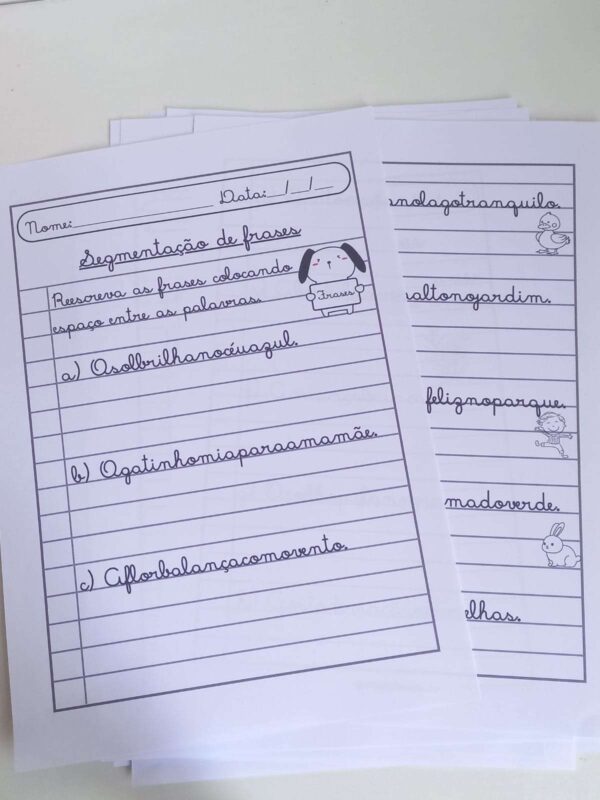 Nome:____________________ Data:__/__/__
Segmentação de frases
Reescreva as frases colocando
espaço entre as palavras.
Frases
a) Osolbrilhanocéuazul.
b) Ogatinhomiaparaamamãe.
c) Aflorbalançacomovento.
nolagotranquilo.
altonojardim.
feliznoparque.
madoverde.
elhas.